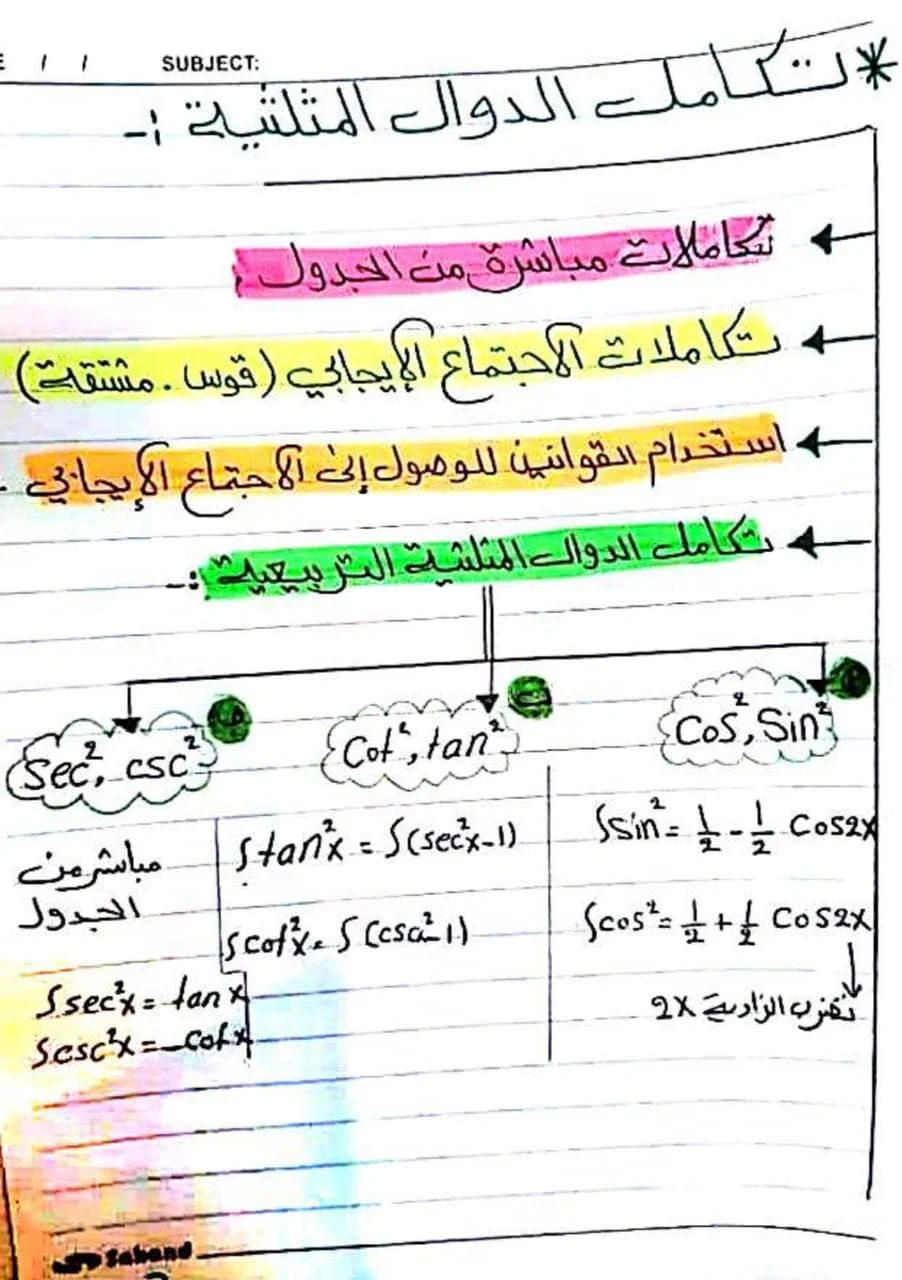 / / SUBJECT:
* تكامل الدوال المثلثية :-
تكاملات مباشرة من الجدول :
تكاملات الاجتماع الإيجابي (قوس . مشتقة)
استخدام القوانين للوصول إلى الاجتماع الإيجابي .
تكامل الدوال المثلثية التربيعية :-
Cos², Sin²
∫sin² = 1/2 - 1/2 Cos2x
∫cos² = 1/2 + 1/2 Cos2x
نضرب الزاوية 2x
Cot², tan²
∫tan²x = ∫(sec²x-1)
∫cot²x = ∫(csc²-1)
Sec², csc²
مباشر من
الجدول
∫sec²x = tan x
∫csc²x = -cot x
Sahand